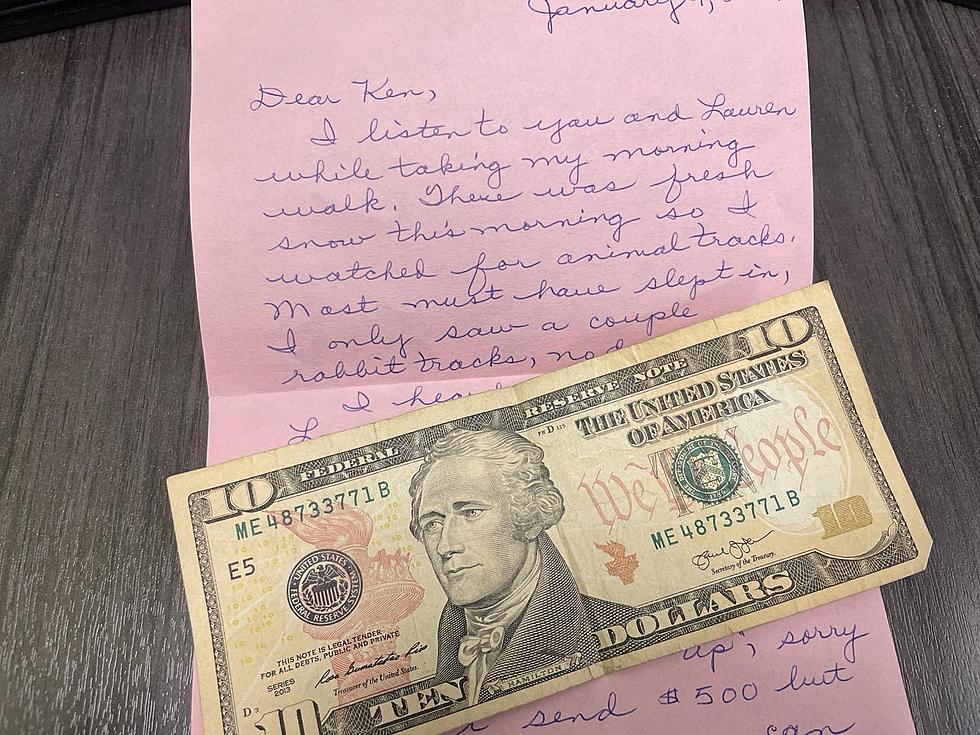 January
Dear Ken,
I listen to you and Lauren
while taking my morning
walk. There was fresh
snow this morning so I
watched for animal tracks.
Most must have slept in,
I only saw a couple
rabbit tracks, no
I
10 FEDERAL RESERVE NOTE 10
THE UNITED STATES
OF AMERICA
ME 48733771 B
We People
E5
UNITED STATES FEDERAL RESERVE SYSTEM
ME 48733771 B
10
Secretary of the Treasury.
THIS NOTE IS LEGAL TENDER
FOR ALL DEBTS, PUBLIC AND PRIVATE
Treasurer of the United States.
SERIES
2013
D 3
HAMILTON
10 TEN DOLLARS
up", sorry
send $500 but
can